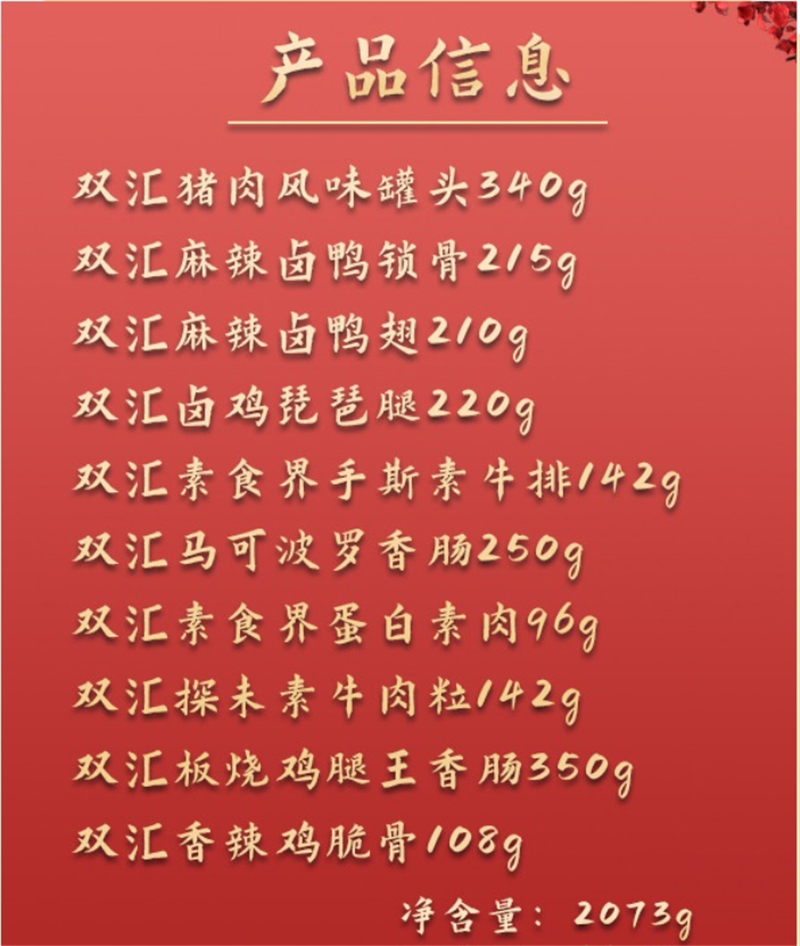 产品信息
双汇猪肉风味罐头340g
双汇麻辣卤鸭锁骨215g
双汇麻辣卤鸭翅210g
双汇卤鸡琵琶腿220g
双汇素食界手斯素牛排142g
双汇马可波罗香肠250g
双汇素食界蛋白素肉96g
双汇探未素牛肉粒142g
双汇板烧鸡腿王香肠350g
双汇香辣鸡脆骨108g
净含量：2073g